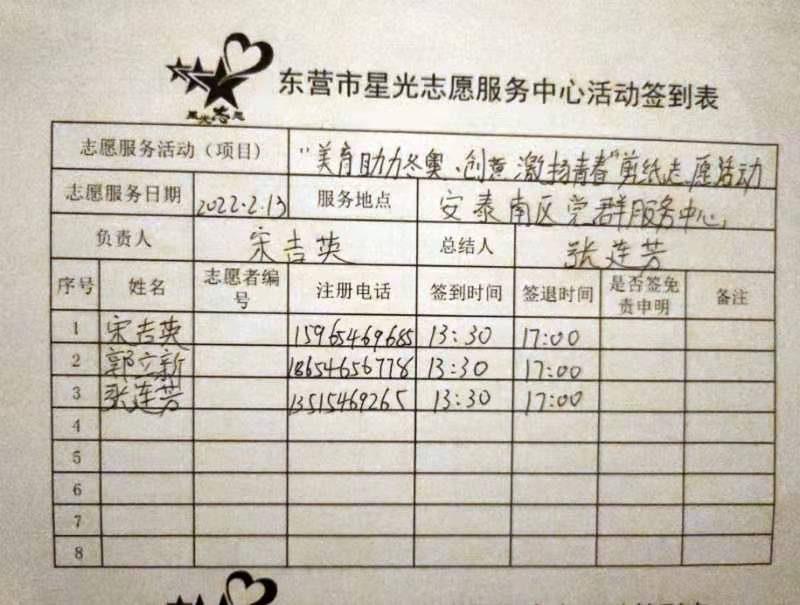 星光志愿
东营市星光志愿服务中心活动签到表
志愿服务活动（项目） “美育助力冬奥、创意激扬青春”剪纸志愿活动
志愿服务日期 2022.2.13 服务地点 安泰南区党群服务中心
负责人 宋吉英 总结人 张连芳
序号 姓名 志愿者编号 注册电话 签到时间 签退时间 是否签免责申明 备注
1 宋吉英 15965469685 13:30 17:00
2 郭立新 18654656778 13:30 17:00
3 张连芳 13515469265 13:30 17:00
4
5
6
7
8